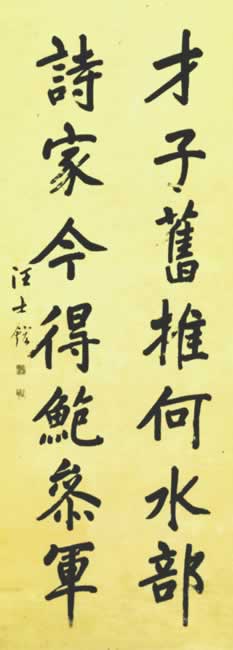 才子舊推何水部
詩家今得鮑參軍
汪士鋐